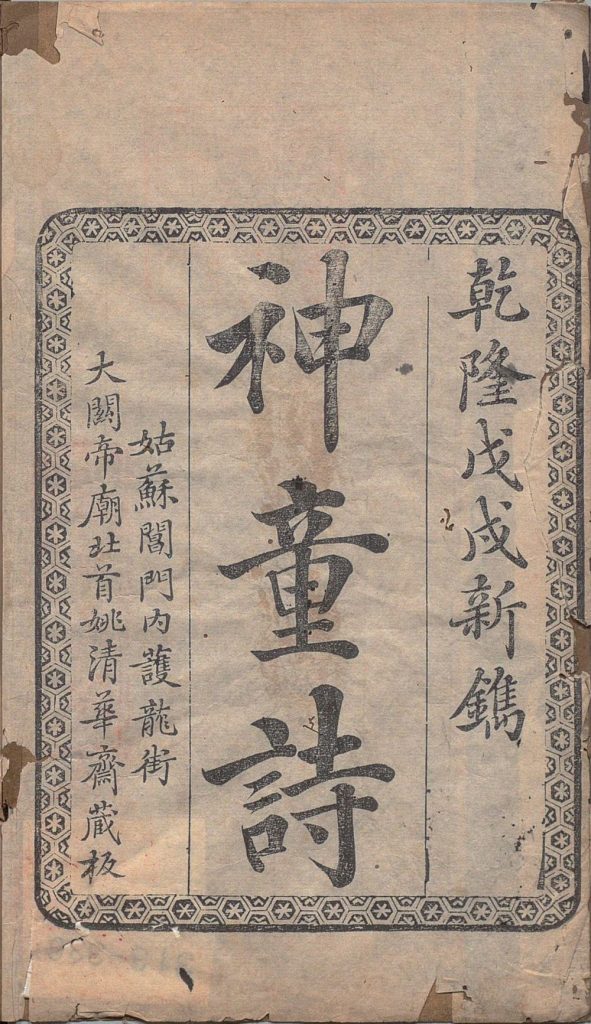 乾隆戊戌新鐫
神童詩
姑蘇閶門内護龍街
大關帝廟北首姚清華齋蔵板